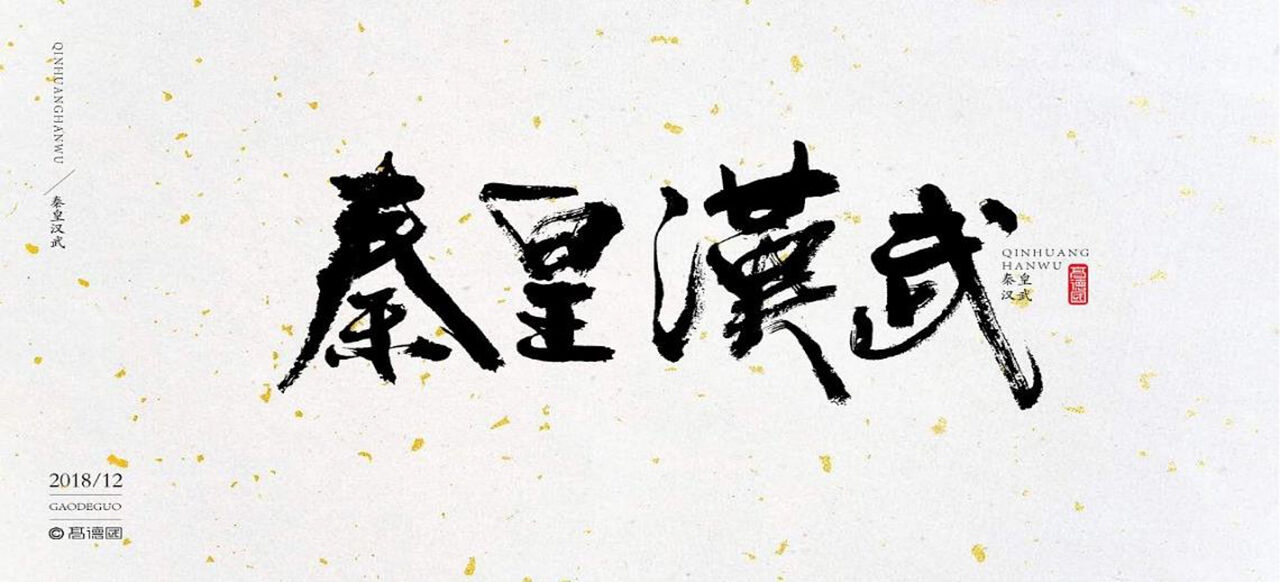 QINHUANGHANWU
秦皇汉武
秦皇漢武
QINHUANG
HANWU
秦皇
汉武
高德國
2018/12
GAODEGUO
©高德國